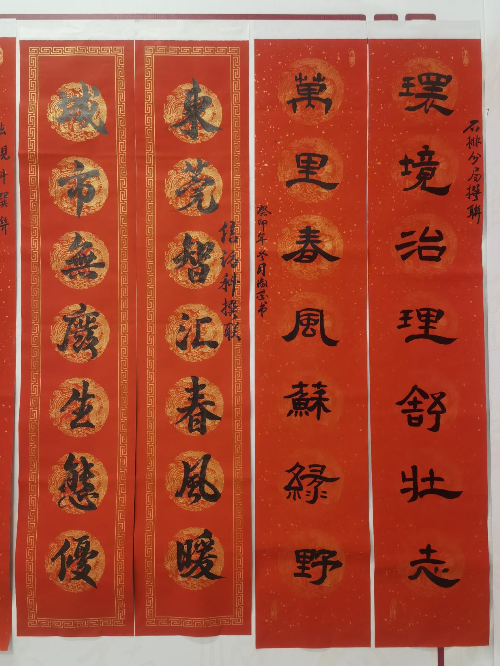 石排分局撰聯
環境治理舒壯志
萬里春風蘇綠野
癸卯年冬月
信访科撰联
東莞智汇春風暖
城市無廢生態優